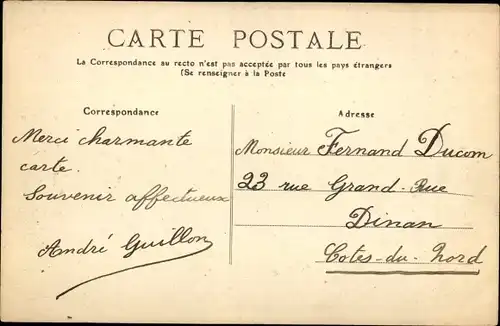 CARTE POSTALE
La Correspondance au recto n'est pas acceptée par tous les pays étrangers
(Se renseigner à la Poste
Correspondance
Merci charmante
carte.
Souvenir affectueux
André Guillon
Adresse
Monsieur Fernand Ducom
23 rue Grand-Rue
Dinan
Cotes-du-Nord